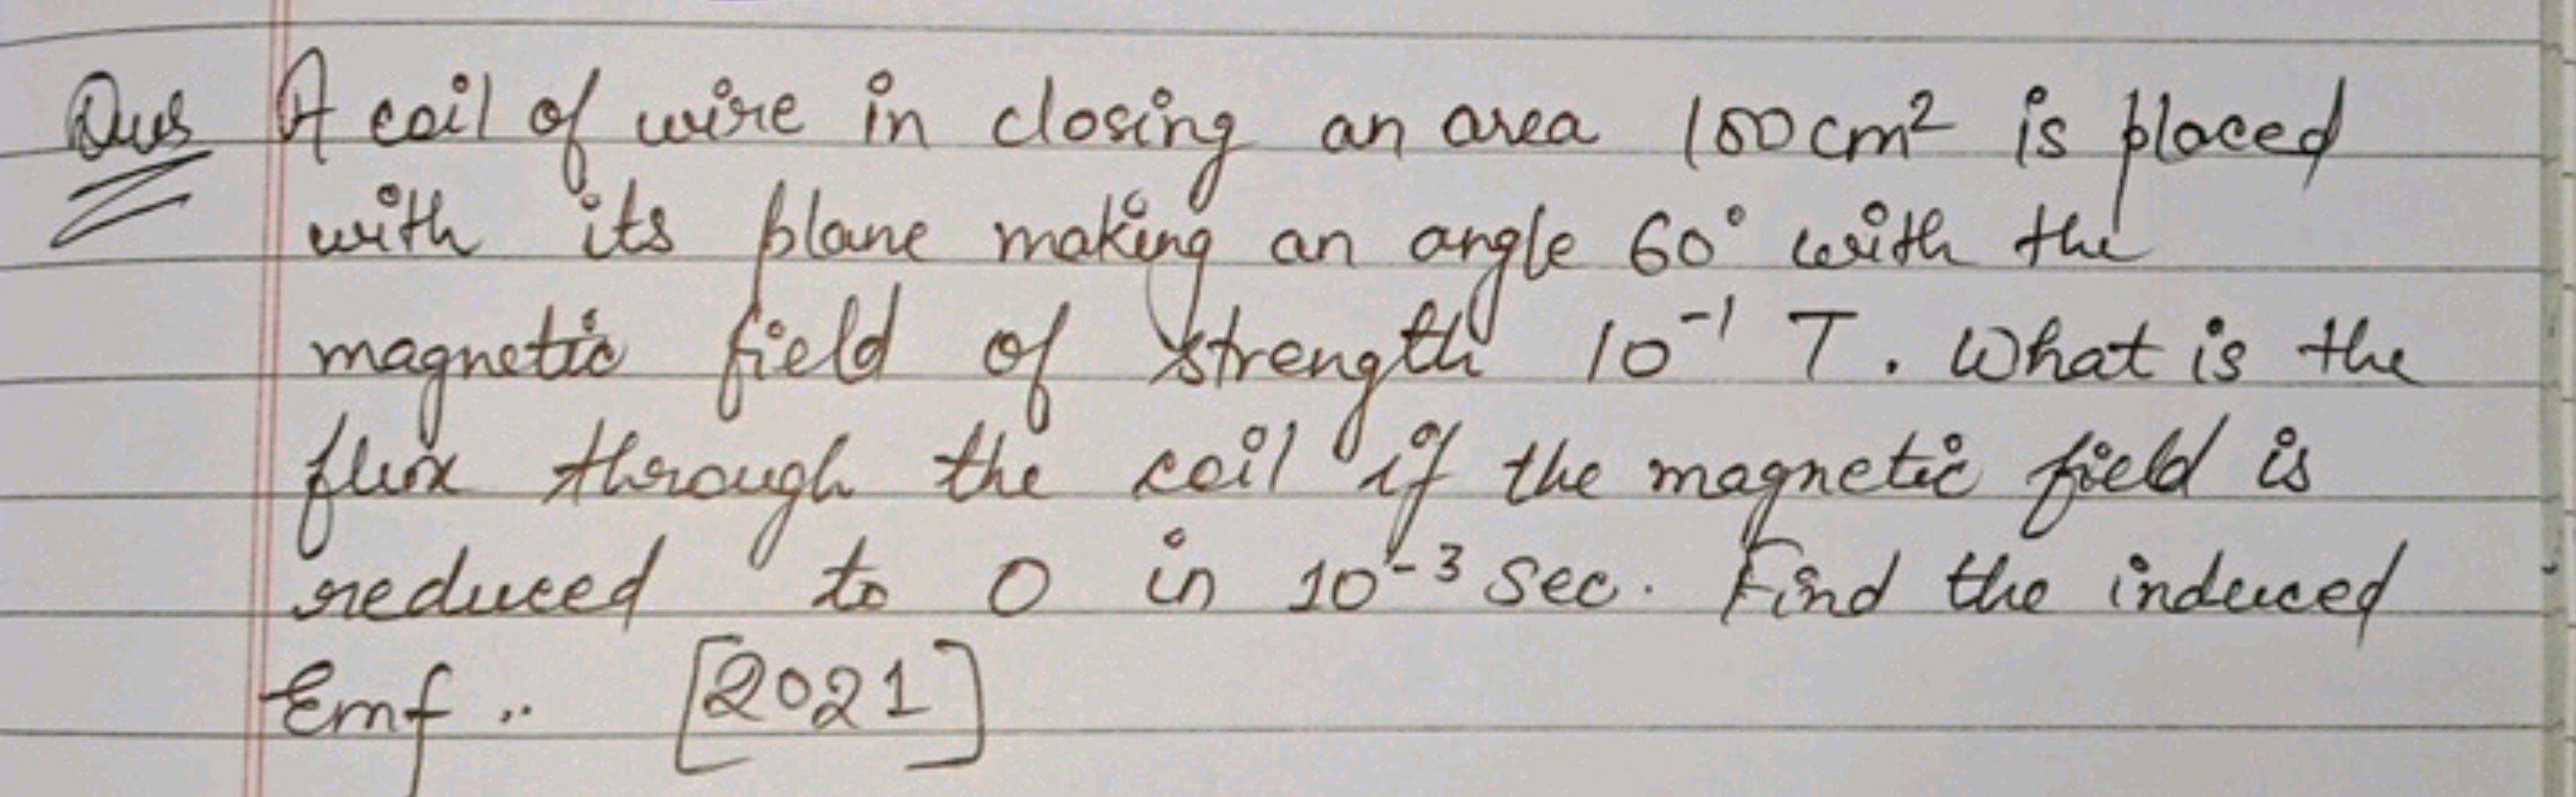 Ques A coil of wire in closing an area 100cm² is placed
with its plane making an angle 60° with the
magnetic field of strength 10⁻¹ T. What is the
flux through the coil if the magnetic field is
reduced to 0 in 10⁻³ sec. Find the induced
Emf .. [2021]